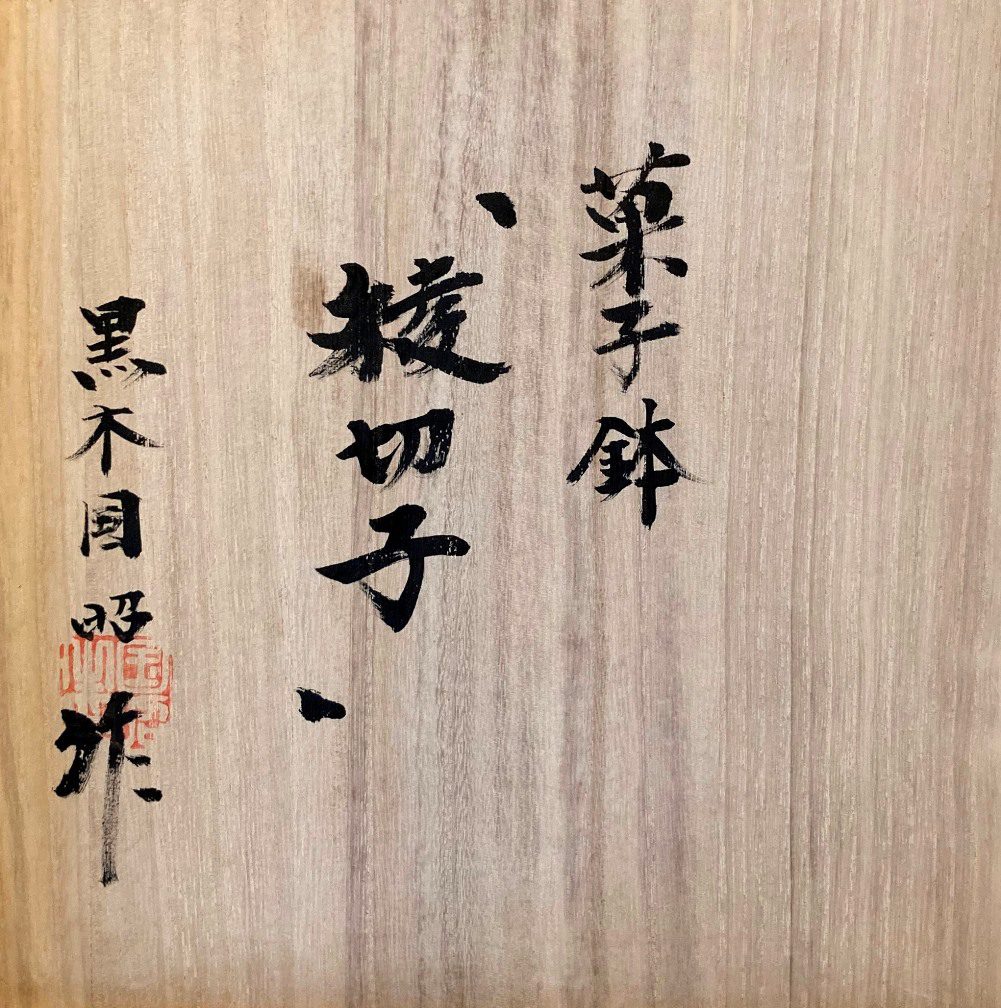 菓子鉢
、稜切子、
黒木国昭作